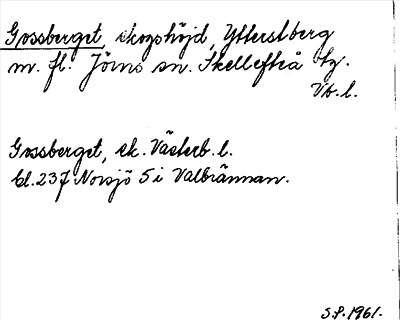 Gossberget, skogshöjd, Ytterstberg
m. fl. Jörns sn. Skellefteå tg.
Vb. l.
Gossberget, ek. Västerb. l.
bl. 237 Norsjö 5 i Valbrännan.
S.P. 1961.